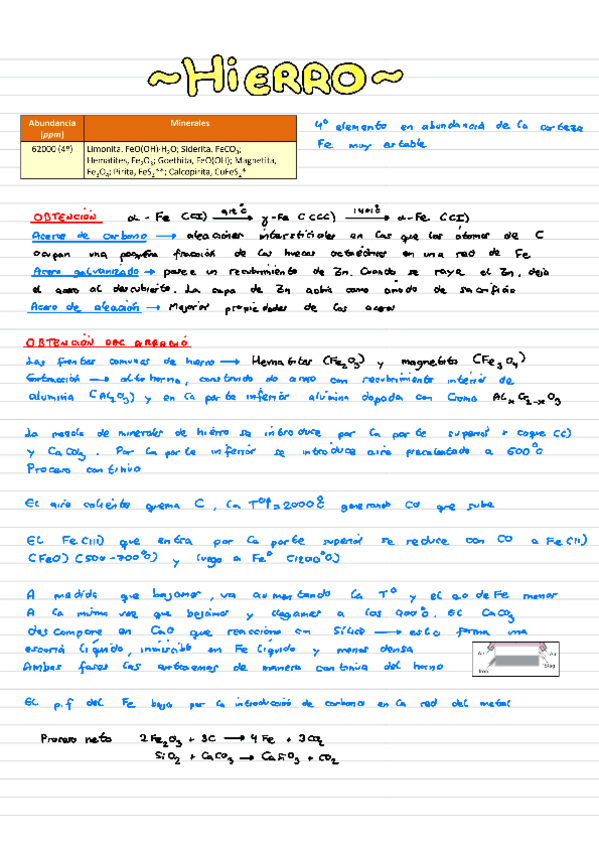 ~HiERRO~
Abundancia (ppm) Minerales
62000 (4º) Limonita, FeO(OH)·H₂O; Siderita, FeCO₃;
Hematites, Fe₂O₃; Goethita, FeO(OH); Magnetita,
Fe₃O₄; Pirita, FeS₂**; Calcopirita, CuFeS₂*
4º elemento en abundancia de la corteza
Fe muy estable
OBTENCIÓN α - Fe (CI) 912ºC → γ-Fe (CCC) 1401ºC → α-Fe (CI)
Aceros de carbono → aleaciones intersticiales en las que los átomos de C
ocupan una pequeña fracción de los huecos octaédricos en una red de Fe
Acero galvanizado → posee un recubrimiento de Zn. Cuando se raya el Zn, deja
el acero al descubierto. La capa de Zn actúa como ánodo de sacrificio
Acero de aleación → Mejorar propiedades de los aceros
OBTENCIÓN DEL ARRABIO
Las fuentes comunes de hierro → Hematites (Fe₂O₃) y magnetita (Fe₃O₄)
Extracción → alto horno, construido de acero con recubrimiento interior de
alumina (Al₂O₃) y en la parte inferior alúmina dopada con Cromo AlₓCr₂₋ₓO₃
La mezcla de minerales de hierro se introduce por la parte superior + coque (C)
y CaCO₃. Por la parte inferior se introduce aire precalentado a 600ºC
Proceso continuo
El aire caliente quema C, la Tª=2000ºC generando CO que sube
El Fe(III) que entra por la parte superior se reduce con CO a Fe(II)
(FeO) (500-700ºC) y luego a Feº (1200ºC)
A medida que bajamos, va aumentando la Tº y el e.o de Fe menor
A la misma vez que bajamos y llegamos a los 900ºC. El CaCO₃
descompone en CaO que reacciona con Sílice → esto forma una
escoria líquida, inmiscible en Fe líquido y menos densa
Ambas fases las extraemos de manera continua del horno
Air Air
Iron Slag
El p.f del Fe baja por la introducción de carbono en la red del metal
Proceso neto 2Fe₂O₃ + 3C → 4Fe + 3CO₂
SiO₂ + CaCO₃ → CaSiO₃ + CO₂